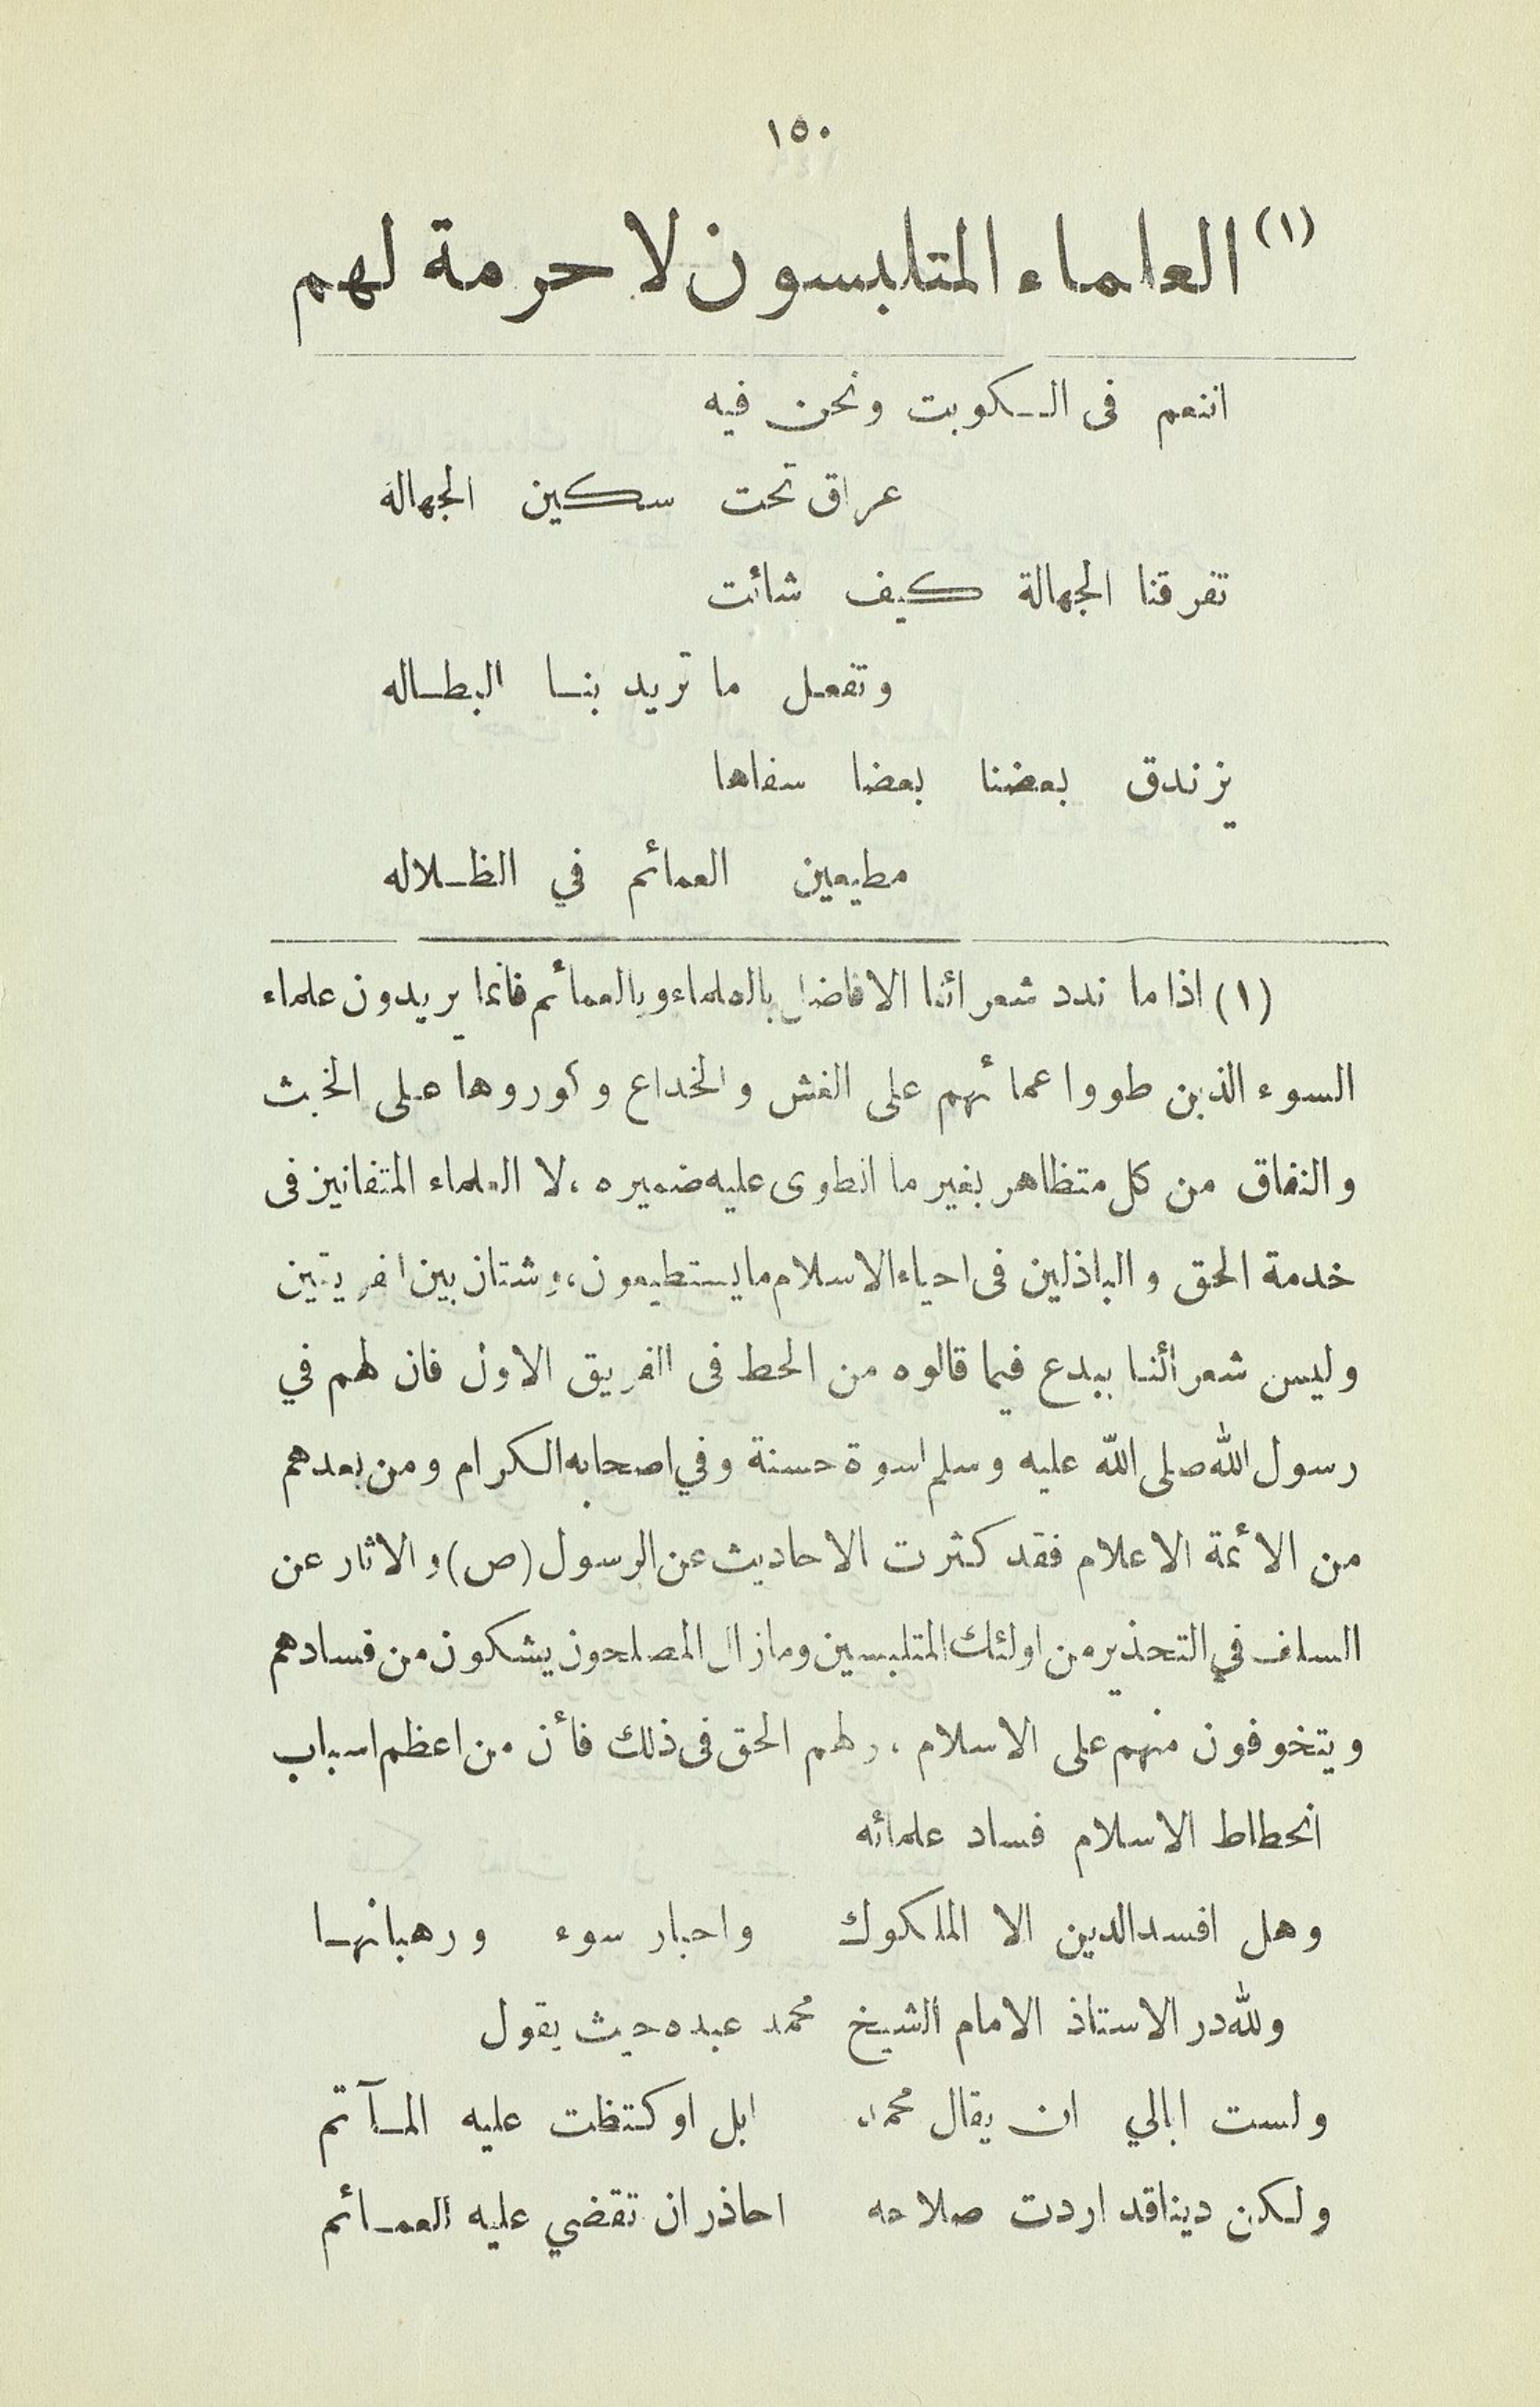 ١٥٠
(١) العلماء المتلبسون لا حرمة لهم
اننعم فى الـكويت ونحن فيه
عراق تحت سكين الجهالة
تفرقنا الجهالة كيف شائت
وتفعل ما تريد بنا البطاله
يزندق بعضنا بعضا سفاها
مطيعين العمائم في الظلاله
(١) اذا ما ندد شعرائنا الافاضل بالعلماء وبالعمائم فانما يريدون علماء
السوء الذين طووا عمائهم على الغش والخداع وكوروها على الخبث
والنفاق من كل متظاهر بغير ما انطوى عليه ضميره ، لا العلماء المتفانين فى
خدمة الحق والباذلين فى احياء الاسلام ما يستطيعون ، وشتان بين الفريقين
وليس شعرائنا ببدع فيما قالوه من الحط فى الفريق الاول فان لهم في
رسول الله صلى الله عليه وسلم اسوة حسنة وفي اصحابه الكرام ومن بعدهم
من الأئمة الاعلام فقد كثرت الاحاديث عن الرسول (ص) والاثار عن
السلف في التحذير من اولئك المتلبسين وما زال المصلحون يشكون من فسادهم
ويتخوفون منهم على الاسلام ، ولهم الحق فى ذلك فأن من اعظم اسباب
انحطاط الاسلام فساد علمائه
وهل افسد الدين الا الملكوك واحبار سوء ورهبانها
ولله در الاستاذ الامام الشيخ محمد عبده حيث يقول
ولست ابالي ان يقال محمد ابل او كتظت عليه المآتم
ولكن دينا قد اردت صلاحه احاذر ان تقضي عليه العمائم